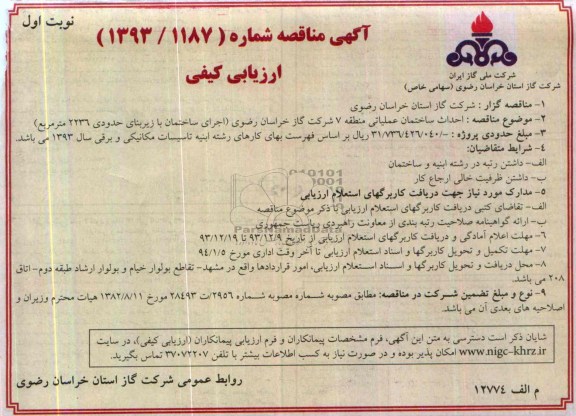 نوبت اول
آگهی مناقصه شماره ( ۱۱۸۷ / ۱۳۹۳ )
ارزیابی کیفی
شرکت ملی گاز ایران
شرکت گاز استان خراسان رضوی (سهامی خاص)
۱- مناقصه گزار : شرکت گاز استان خراسان رضوی
۲- موضوع مناقصه : احداث ساختمان عملیاتی منطقه ۷ شرکت گاز خراسان رضوی (اجرای ساختمان با زیربنای حدودی ۲۲۳۶ مترمربع)
۳- مبلغ حدودی پروژه : -/۳۱/۷۳۶/۴۲۶/۰۴۰ ریال بر اساس فهرست بهای کارهای رشته ابنیه تاسیسات مکانیکی و برقی سال ۱۳۹۳ می باشد.
۴- شرایط متقاضیان:
الف- داشتن رتبه در رشته ابنیه و ساختمان
ب- داشتن ظرفیت خالی ارجاع کار
۵- مدارک مورد نیاز جهت دریافت کاربرگهای استعلام ارزیابی
الف- تقاضای کتبی دریافت کاربرگهای استعلام ارزیابی با ذکر موضوع مناقصه
ب- ارائه گواهینامه صلاحیت رتبه بندی از معاونت راهبردی ریاست جمهوری
۶- مهلت اعلام آمادگی و دریافت کاربرگهای استعلام ارزیابی از تاریخ ۹۳/۱۲/۹ تا ۹۳/۱۲/۱۹
۷- مهلت تکمیل و تحویل کاربرگها و اسناد استعلام ارزیابی تا آخر وقت اداری مورخ ۹۴/۱/۵
۸- محل دریافت و تحویل کاربرگها و اسناد استعلام ارزیابی، امور قراردادها واقع در مشهد- تقاطع بولوار خیام و بولوار ارشاد طبقه دوم- اتاق
۲۰۸ می باشد.
۹- نوع و مبلغ تضمین شرکت در مناقصه: مطابق مصوبه شماره مصوبه شماره ۲۹۵۶/ت ۲۸۴۹۳ مورخ ۱۳۸۲/۸/۱۱ هیات محترم وزیران و
اصلاحیه های بعدی آن می باشد.
شایان ذکر است دسترسی به متن این آگهی، فرم مشخصات پیمانکاران و فرم ارزیابی پیمانکاران (ارزیابی کیفی)، در سایت
www.nigc-khrz.ir امکان پذیر بوده و در صورت نیاز به کسب اطلاعات بیشتر با تلفن ۳۷۰۷۲۲۰۷ تماس بگیرید.
روابط عمومی شرکت گاز استان خراسان رضوی
م الف ۱۲۷۷۴